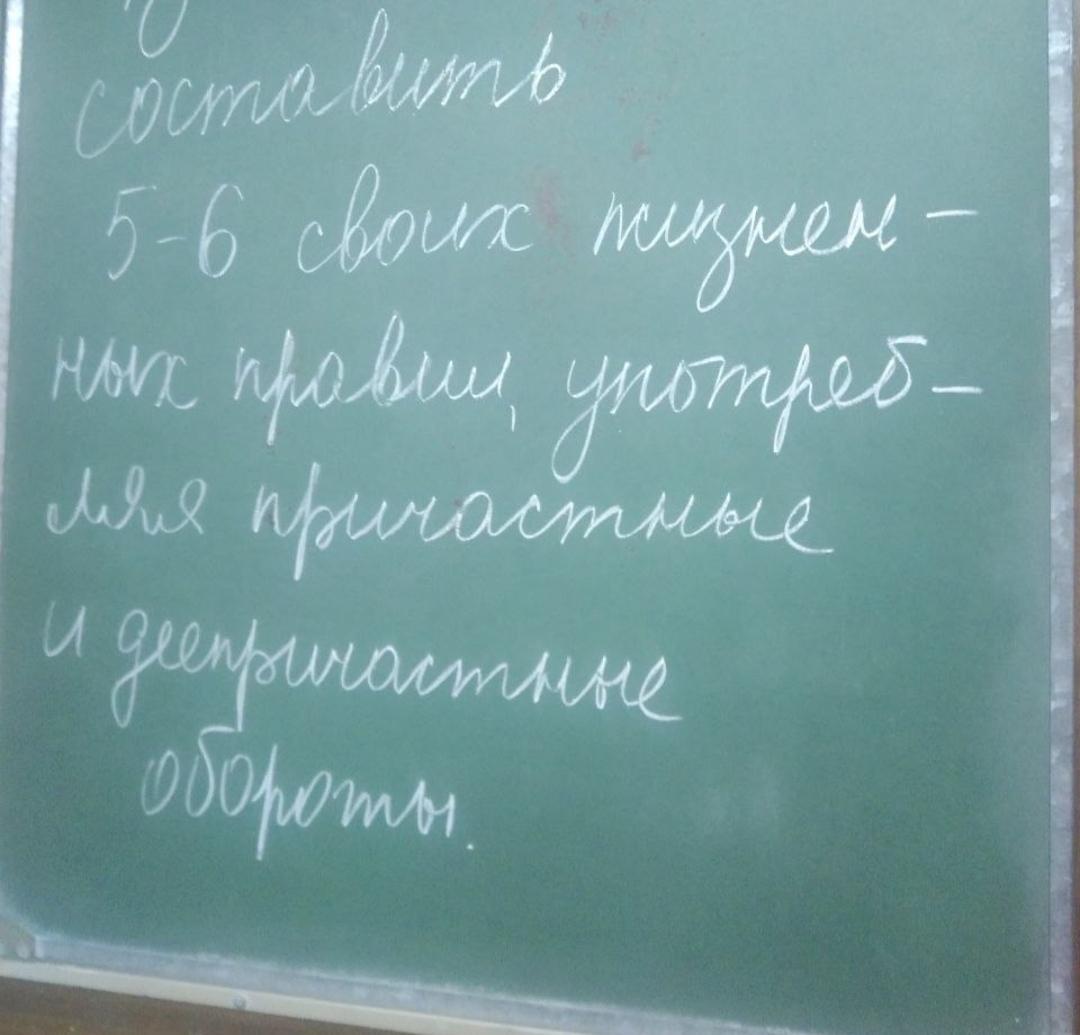 составить
5-6 своих жизнен-
ных правил, употреб-
ляя причастные
и деепричастные
обороты.